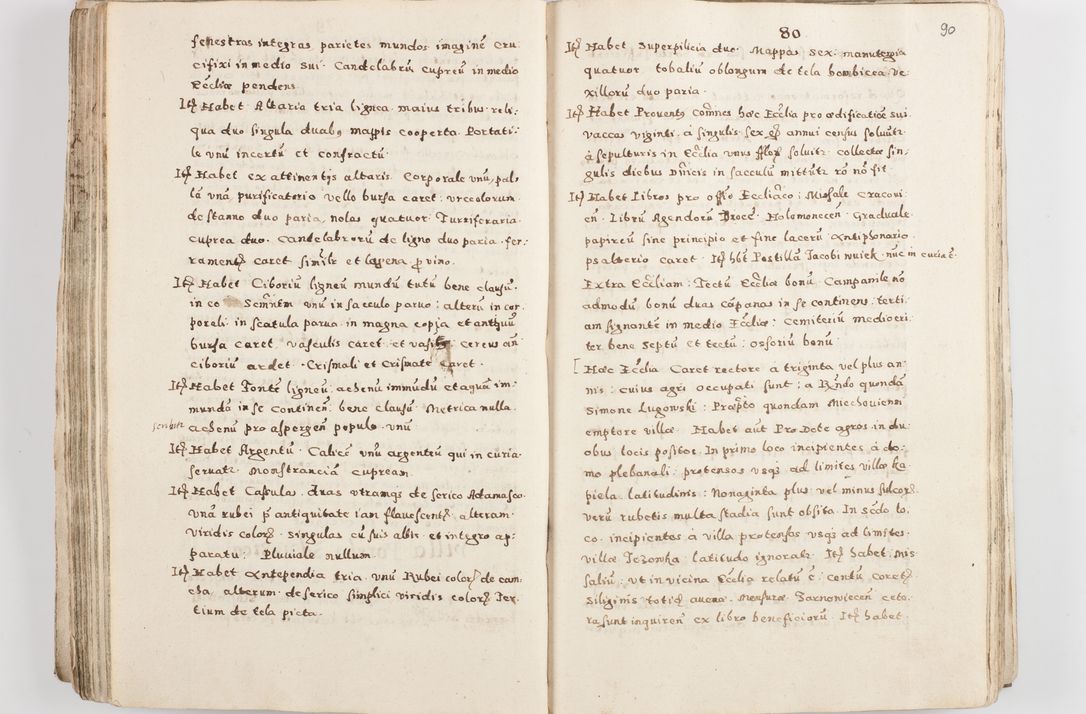 fenestras integras parietes mundos imaginē Cru
cifixi in medio sui. Candelabrū cupreū in medio
Eccliæ pendens
Itꝫ Habet Altaria tria lignea maius tribus reli,
qua duo singula duabꝰ mappis cooperta. Portati,
le vnū incertū et confractū.
Itꝫ Habet ex attinentijs altaris Corporale vnū, pal,
lā vnā purificatorio vello bursa caret. vrceolorum
de stanno duo paria, nolas quatuor. Turriferaria
cuprea duo. Candelabrorū de ligno duo paria. fer,
ramentꝫ caret similr et lagena ꝓ vino.
Itꝫ Habet Ciboriū ligneū mundū tutū bene clausū.
in eo Scmētm vnū in sacculo paruo: alterū in cor,
porali in scatula parua in magna copia et antiquū
bursa caret. vasculis caret et vasis cereus añ
ciboriū ardet. Crismali et Crismate caret.
Itꝫ Habet Fontē ligneū, ahenū immūdū et aquā im,
mundā in se continen: bene clausū Metrica nulla
scribit ahenū pro aspergen populo vnū
Itꝫ Habet Argentū. Calicē vnū argenteū qui in curia
seruatr Monstranciā cupream.
Itꝫ Habet Casulas duas vtramqꝫ de serico Adamasco
vnā rubei p̄ antiquitate iam flauescentꝫ alteram
viridis colorꝫ singulas cū suis albis et integro ap,
paratu. Pluuiale nullum.
Itꝫ Habet Antependia tria. vnū Rubei colorꝫ de cam
cha, alterum de serico simplici viridis colorꝫ Ter,
tium de tela picta.
80
90
Itꝫ Habet Superpilicia duo. Mappas sex. manutergia
quatuor. tobaliū oblongum de tela bombicea ve,
xillorū duo paria.
Itꝫ Habet Prouentꝰ com̄nes hæc Ecclia pro ædificatiōe sui
vaccas viginti, à singulis sex gr annui census soluūtr
à sepulturis in Ecclia vnus fflor soluitr collectæ sin,
gulis diebus Dn̄icis in sacculū mittūtr rō nō fit.
Itꝫ Habet Libros pro offō Eccliāco: Missale Cracoui
eñ. Librū Agendorū Diocē: Holomonecen Graduale
papireū sine principio et fine lacerū Antiphonario
psalterio caret. Itꝫ hēt Postillā Jacobi wuiek. nūc in curia ē.
Extra Eccliam: Tectū Eccliæ bonū. Campanile nō
admodū bonū duas cāpanas in se continens: terti,
am signantē in medio Eccliæ: Cemiteriū mediocri
ter bene septū et tectū: ossoriū bonū.
[ Hæc Ecclia Caret rectore a triginta vel plus an
nis: cuius agri occupati sunt: a Rn̄do quondā
Simone Lugowski: Præp̄to quondam Miechouienn
emptore villæ. Habet aūt Pro Dote agros in du
obus locis positos. In primo loco incipientes à do,
mo plebanali: protensos vsqꝫ ad limites villæ ka
piela latitudinis: Nonaginta plus vel minus sulcorꝫ.
verū rubetis multa stadia sunt obsita. In scdo lo,
co incipientes à villa protensos vsqꝫ ad limites
villæ Jezomka latitudo ignoratr. Itꝫ habet Mis
saliū: vt in vicina Ecclia relatū ē: centū coretꝫ
siliginis totidꝫ auenæ. Mensuræ Tarnowiecen ceto
ra sunt inquiren ex libro beneficiorū. Itꝫ habet